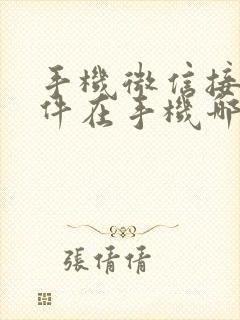 手機微信接
件在手機哪
張倩倩